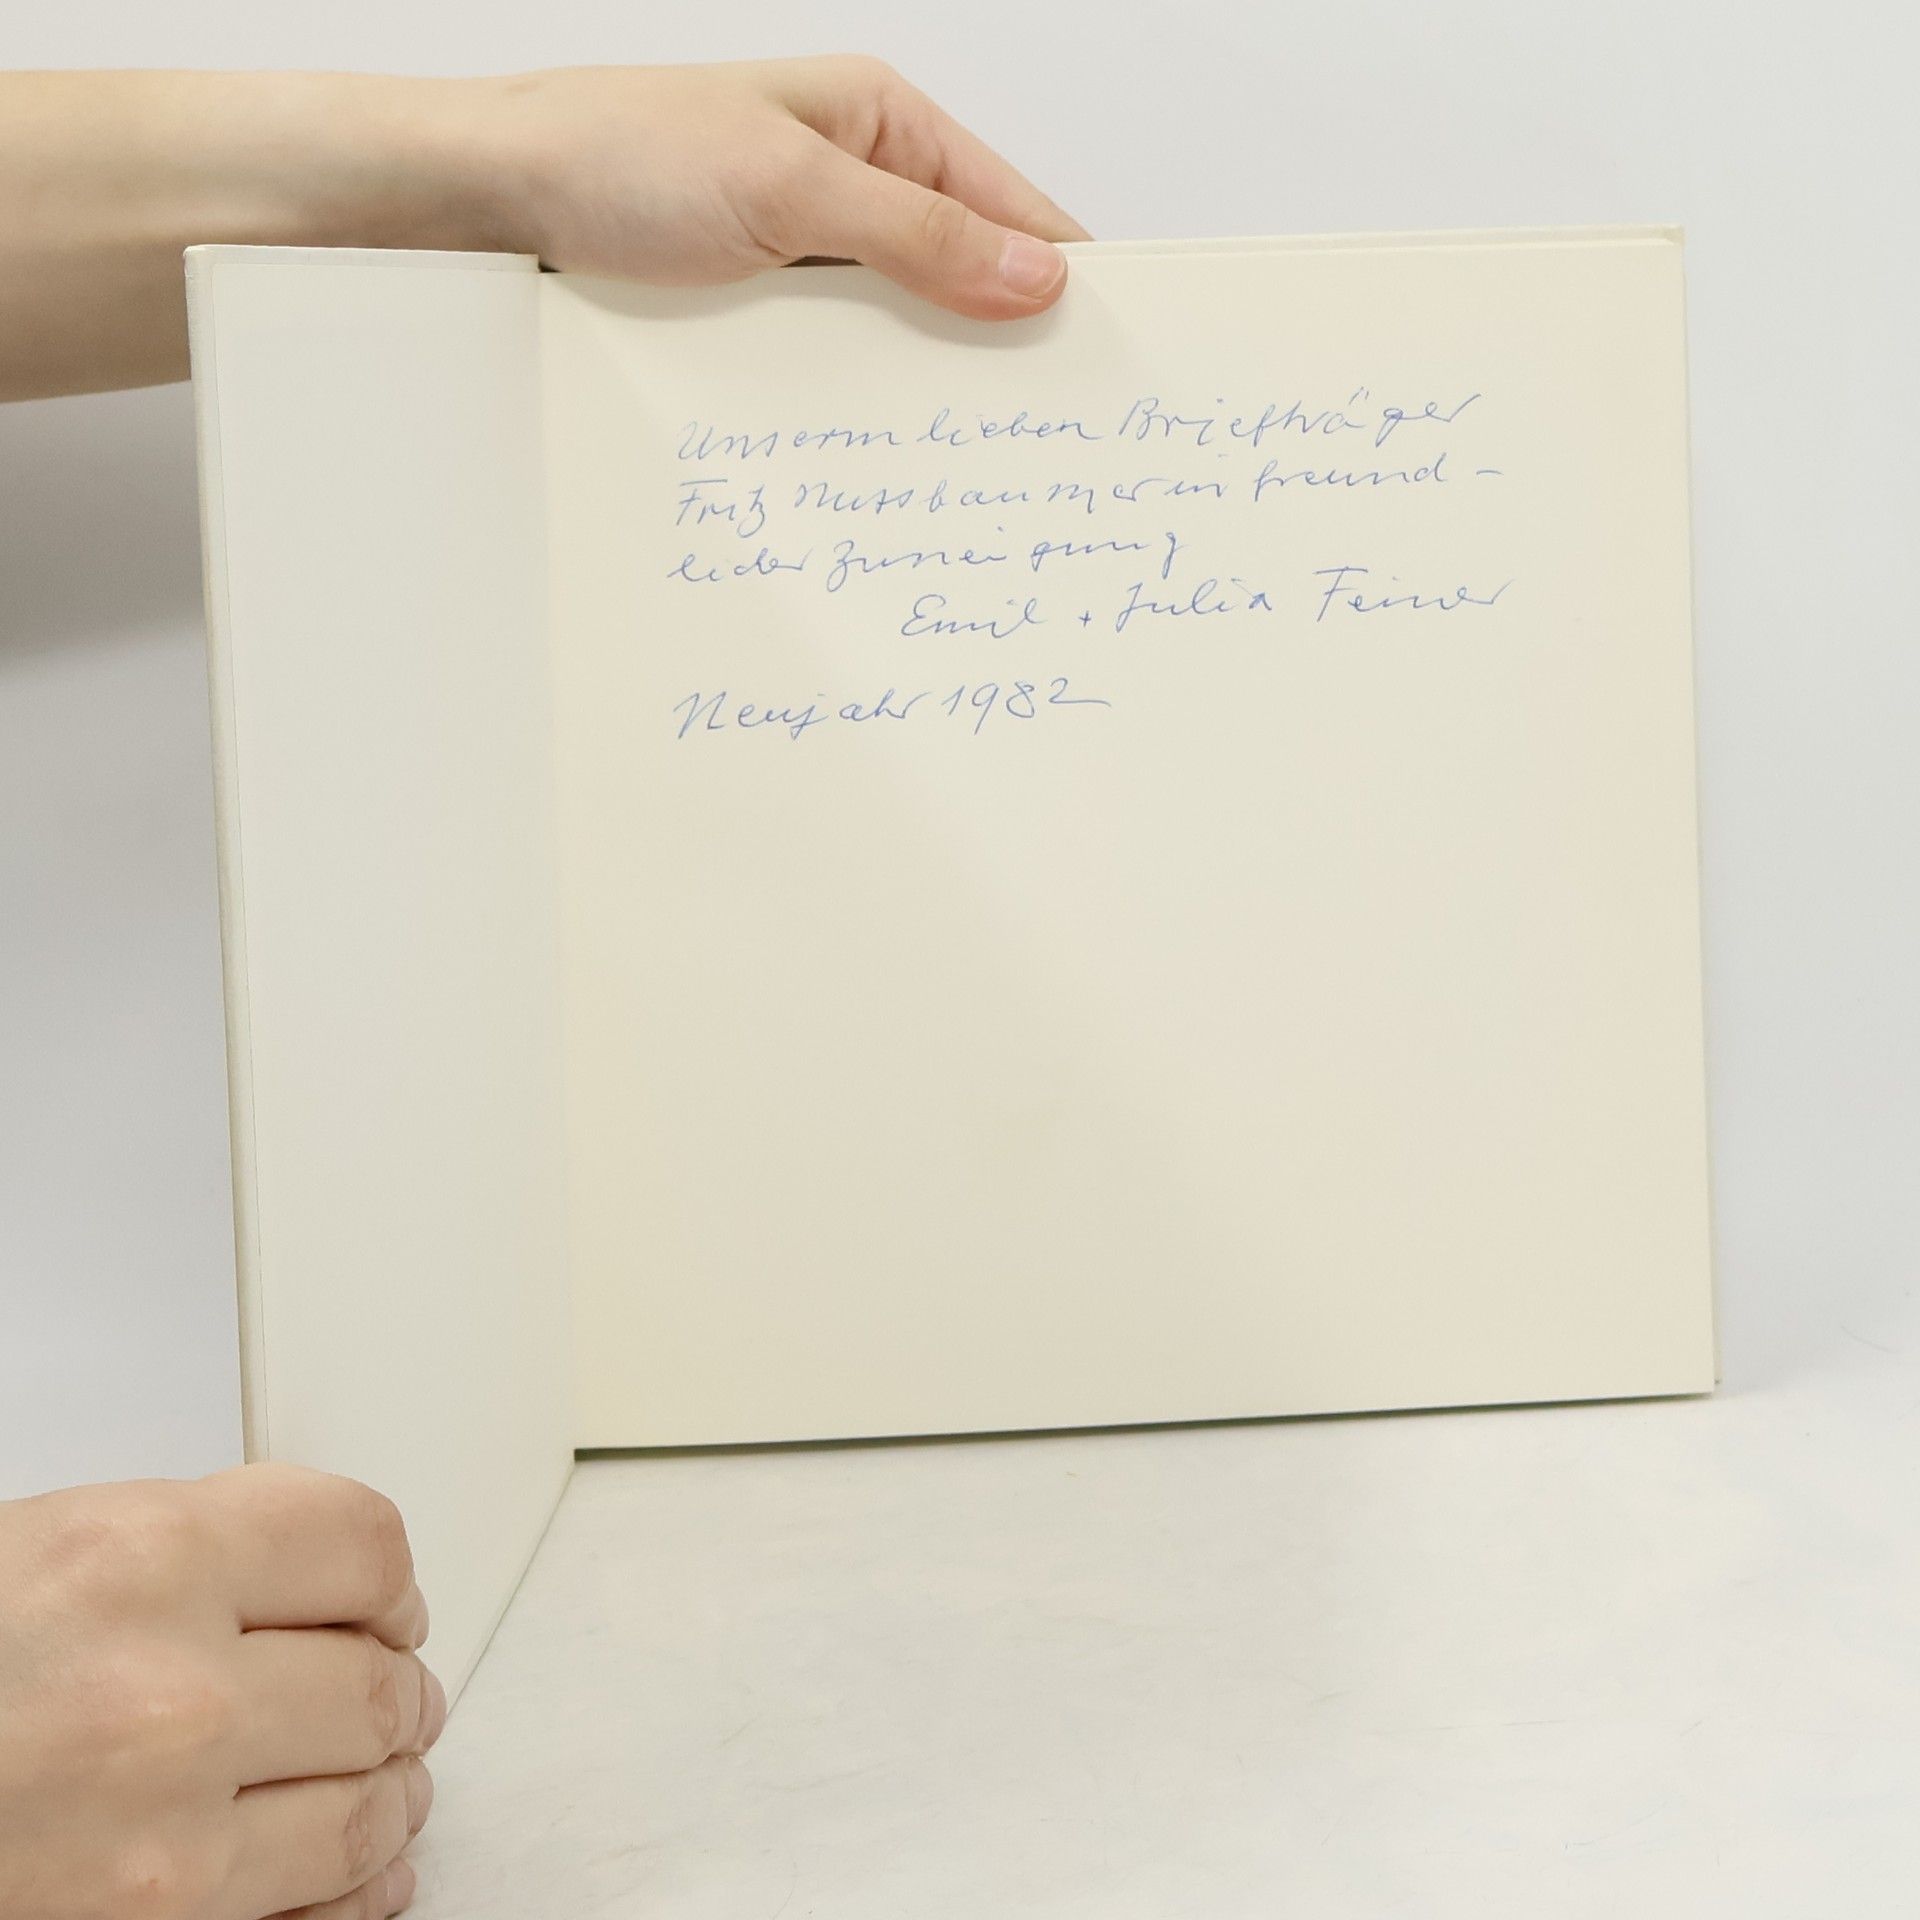 Unserm lieben Briefträger
Fritz Nussbaumer in freund-
licher Zuneigung
Emil + Julia Feiner
Neujahr 1982